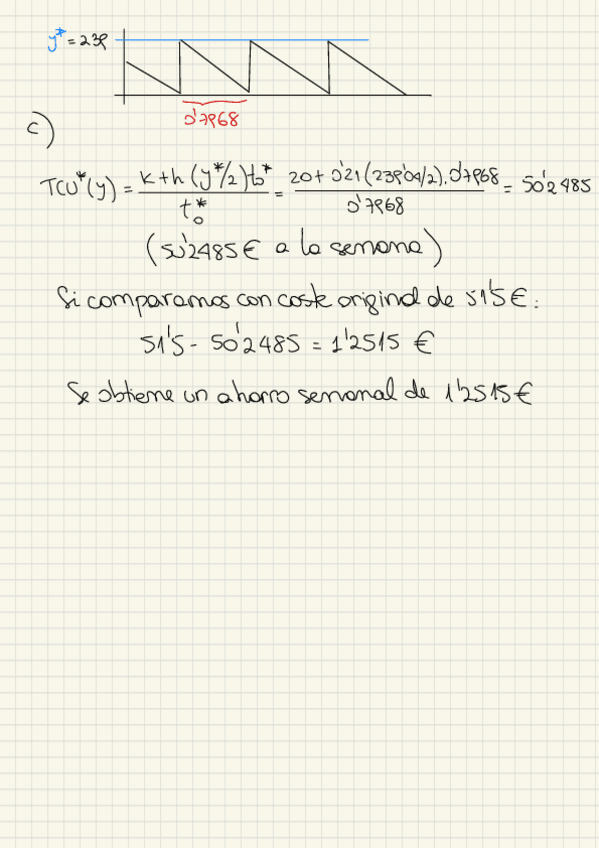 y* = 239
0'7968
c)
TCU*(y) = (K + h (y*/2) t₀*) / t₀* = (20 + 0'21 (239'04/2) · 0'7968) / 0'7968 = 50'2485
(50'2485€ a la semana)
Si comparamos con coste original de 51'5€:
51'5 - 50'2485 = 1'2515 €
Se obtiene un ahorro semanal de 1'2515€